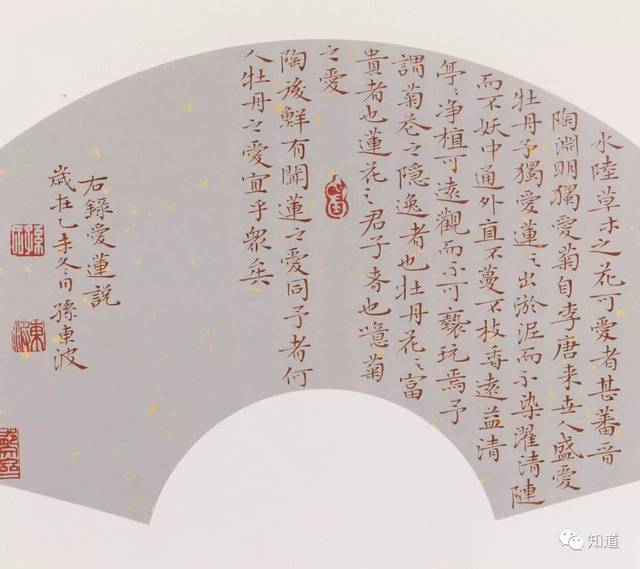 水陸草木之花可愛者甚蕃晉
陶淵明獨愛菊自李唐来世人盛愛
牡丹予獨愛蓮〻出淤泥而不染濯清漣
而不妖中通外直不蔓不枝香遠益清
亭〻净植可遠觀而不可褻玩焉予
謂菊花之隐逸者也牡丹花〻富
貴者也蓮花〻君子者也噫菊
之愛
陶後鮮有聞蓮之愛同予者何
人牡丹之愛宜乎衆矣
右錄愛蓮説
歲在乙未冬月孫東波
知道